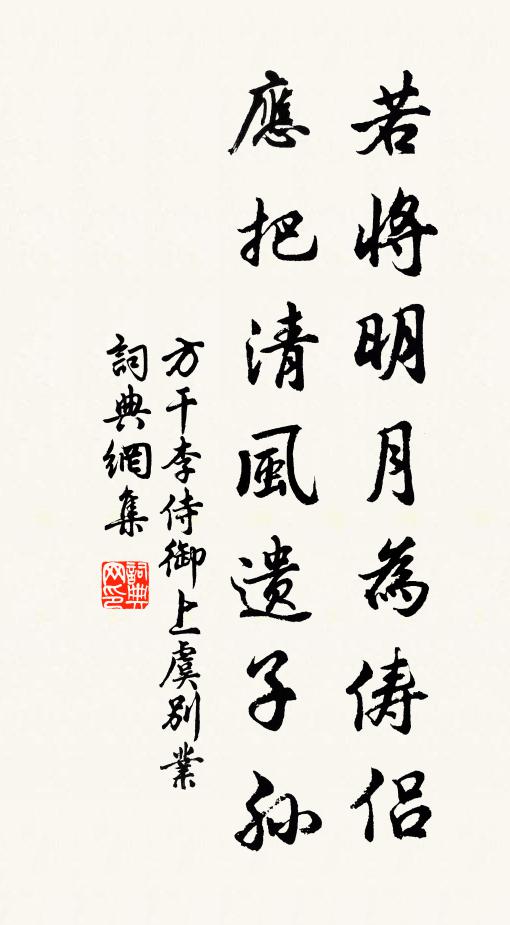 若將明月為儔侶
應把清風遺子孫
方干李侍御上虞別業
詞典網集
詞典网印